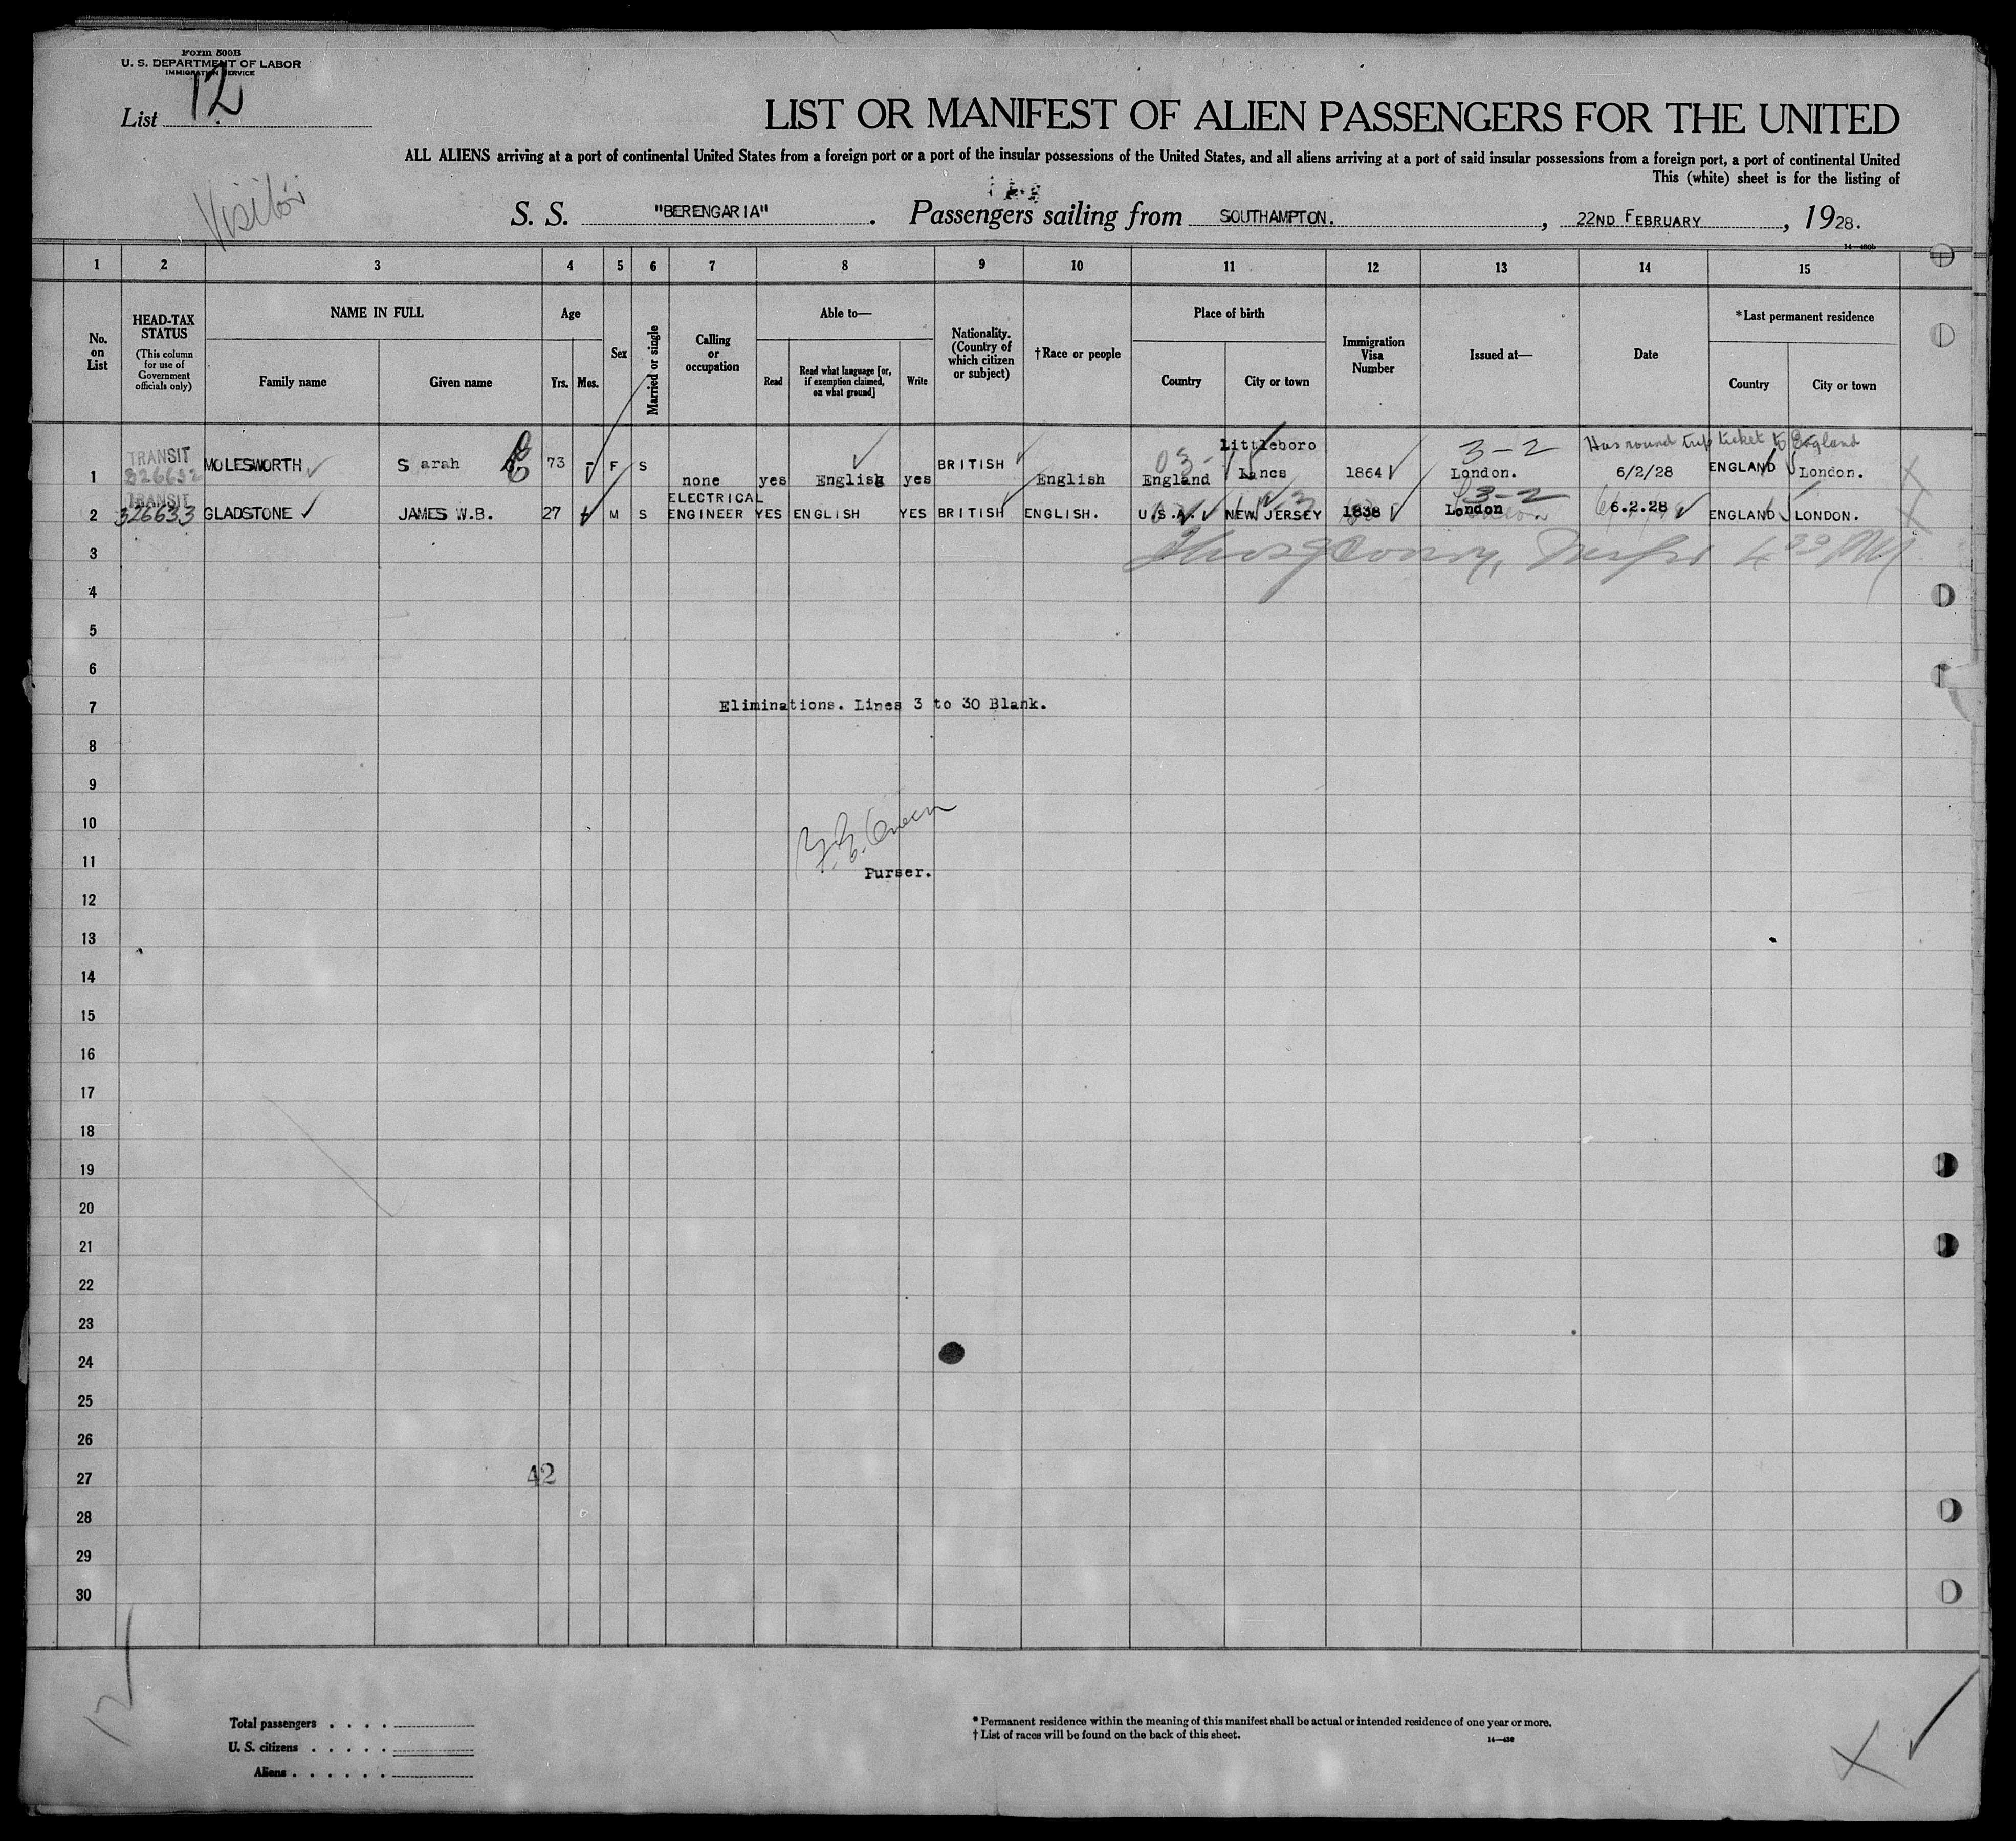 Form 500B
U. S. DEPARTMENT OF LABOR
IMMIGRATION SERVICE
List 12
LIST OR MANIFEST OF ALIEN PASSENGERS FOR THE UNITED
ALL ALIENS arriving at a port of continental United States from a foreign port or a port of the insular possessions of the United States, and all aliens arriving at a port of said insular possessions from a foreign port, a port of continental United
This (white) sheet is for the listing of
Visitor
S. S. "BERENGARIA". Passengers sailing from SOUTHAMPTON., 22ND FEBRUARY, 1928.
14—430b
1 2 3 4 5 6 7 8 9 10 11 12 13 14 15
No. on List
HEAD-TAX STATUS (This column for use of Government officials only)
NAME IN FULL
Family name
Given name
Age
Yrs. Mos.
Sex
Married or single
Calling or occupation
Able to—
Read
Read what language [or, if exemption claimed, on what ground]
Write
Nationality. (Country of which citizen or subject)
†Race or people
Place of birth
Country
City or town
Immigration Visa Number
Issued at—
Date
*Last permanent residence
Country
City or town
Littleboro 3-2 Has round trip ticket to England
1 TRANSIT 326632 MOLESWORTH Sarah 73 - F S none yes English yes BRITISH English England Lancs 1864 London. 6/2/28 ENGLAND London.
2 TRANSIT 326633 GLADSTONE JAMES W.B. 27 M S ELECTRICAL ENGINEER YES ENGLISH YES BRITISH ENGLISH. U.S.A. NEW JERSEY 1838 3-2 London 6.2.28 ENGLAND LONDON.
3
4
5
6
7 Eliminations. Lines 3 to 30 Blank.
8
9
10
11
Purser.
12
13
14
15
16
17
18
19
20
21
22
23
24
25
26
27 42
28
29
30
Total passengers . . . .
U. S. citizens . . . . .
Aliens . . . . . .
* Permanent residence within the meaning of this manifest shall be actual or intended residence of one year or more.
† List of races will be found on the back of this sheet.
14—430